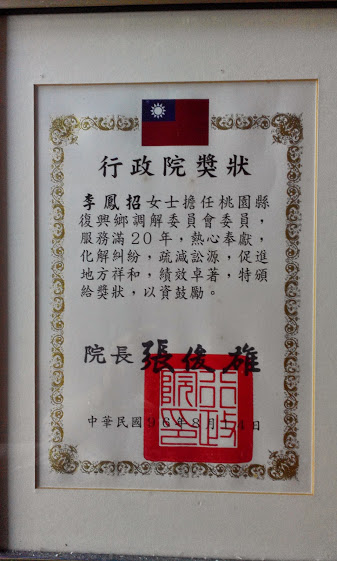 行政院獎狀
李鳳招女士擔任桃園縣
復興鄉調解委員會委員，
服務滿20年，熱心奉獻，
化解糾紛，疏減訟源，促進
地方祥和，績效卓著，特頒
給獎狀，以資鼓勵。
院長 張俊雄
行政院印
中華民國96年8月 4日